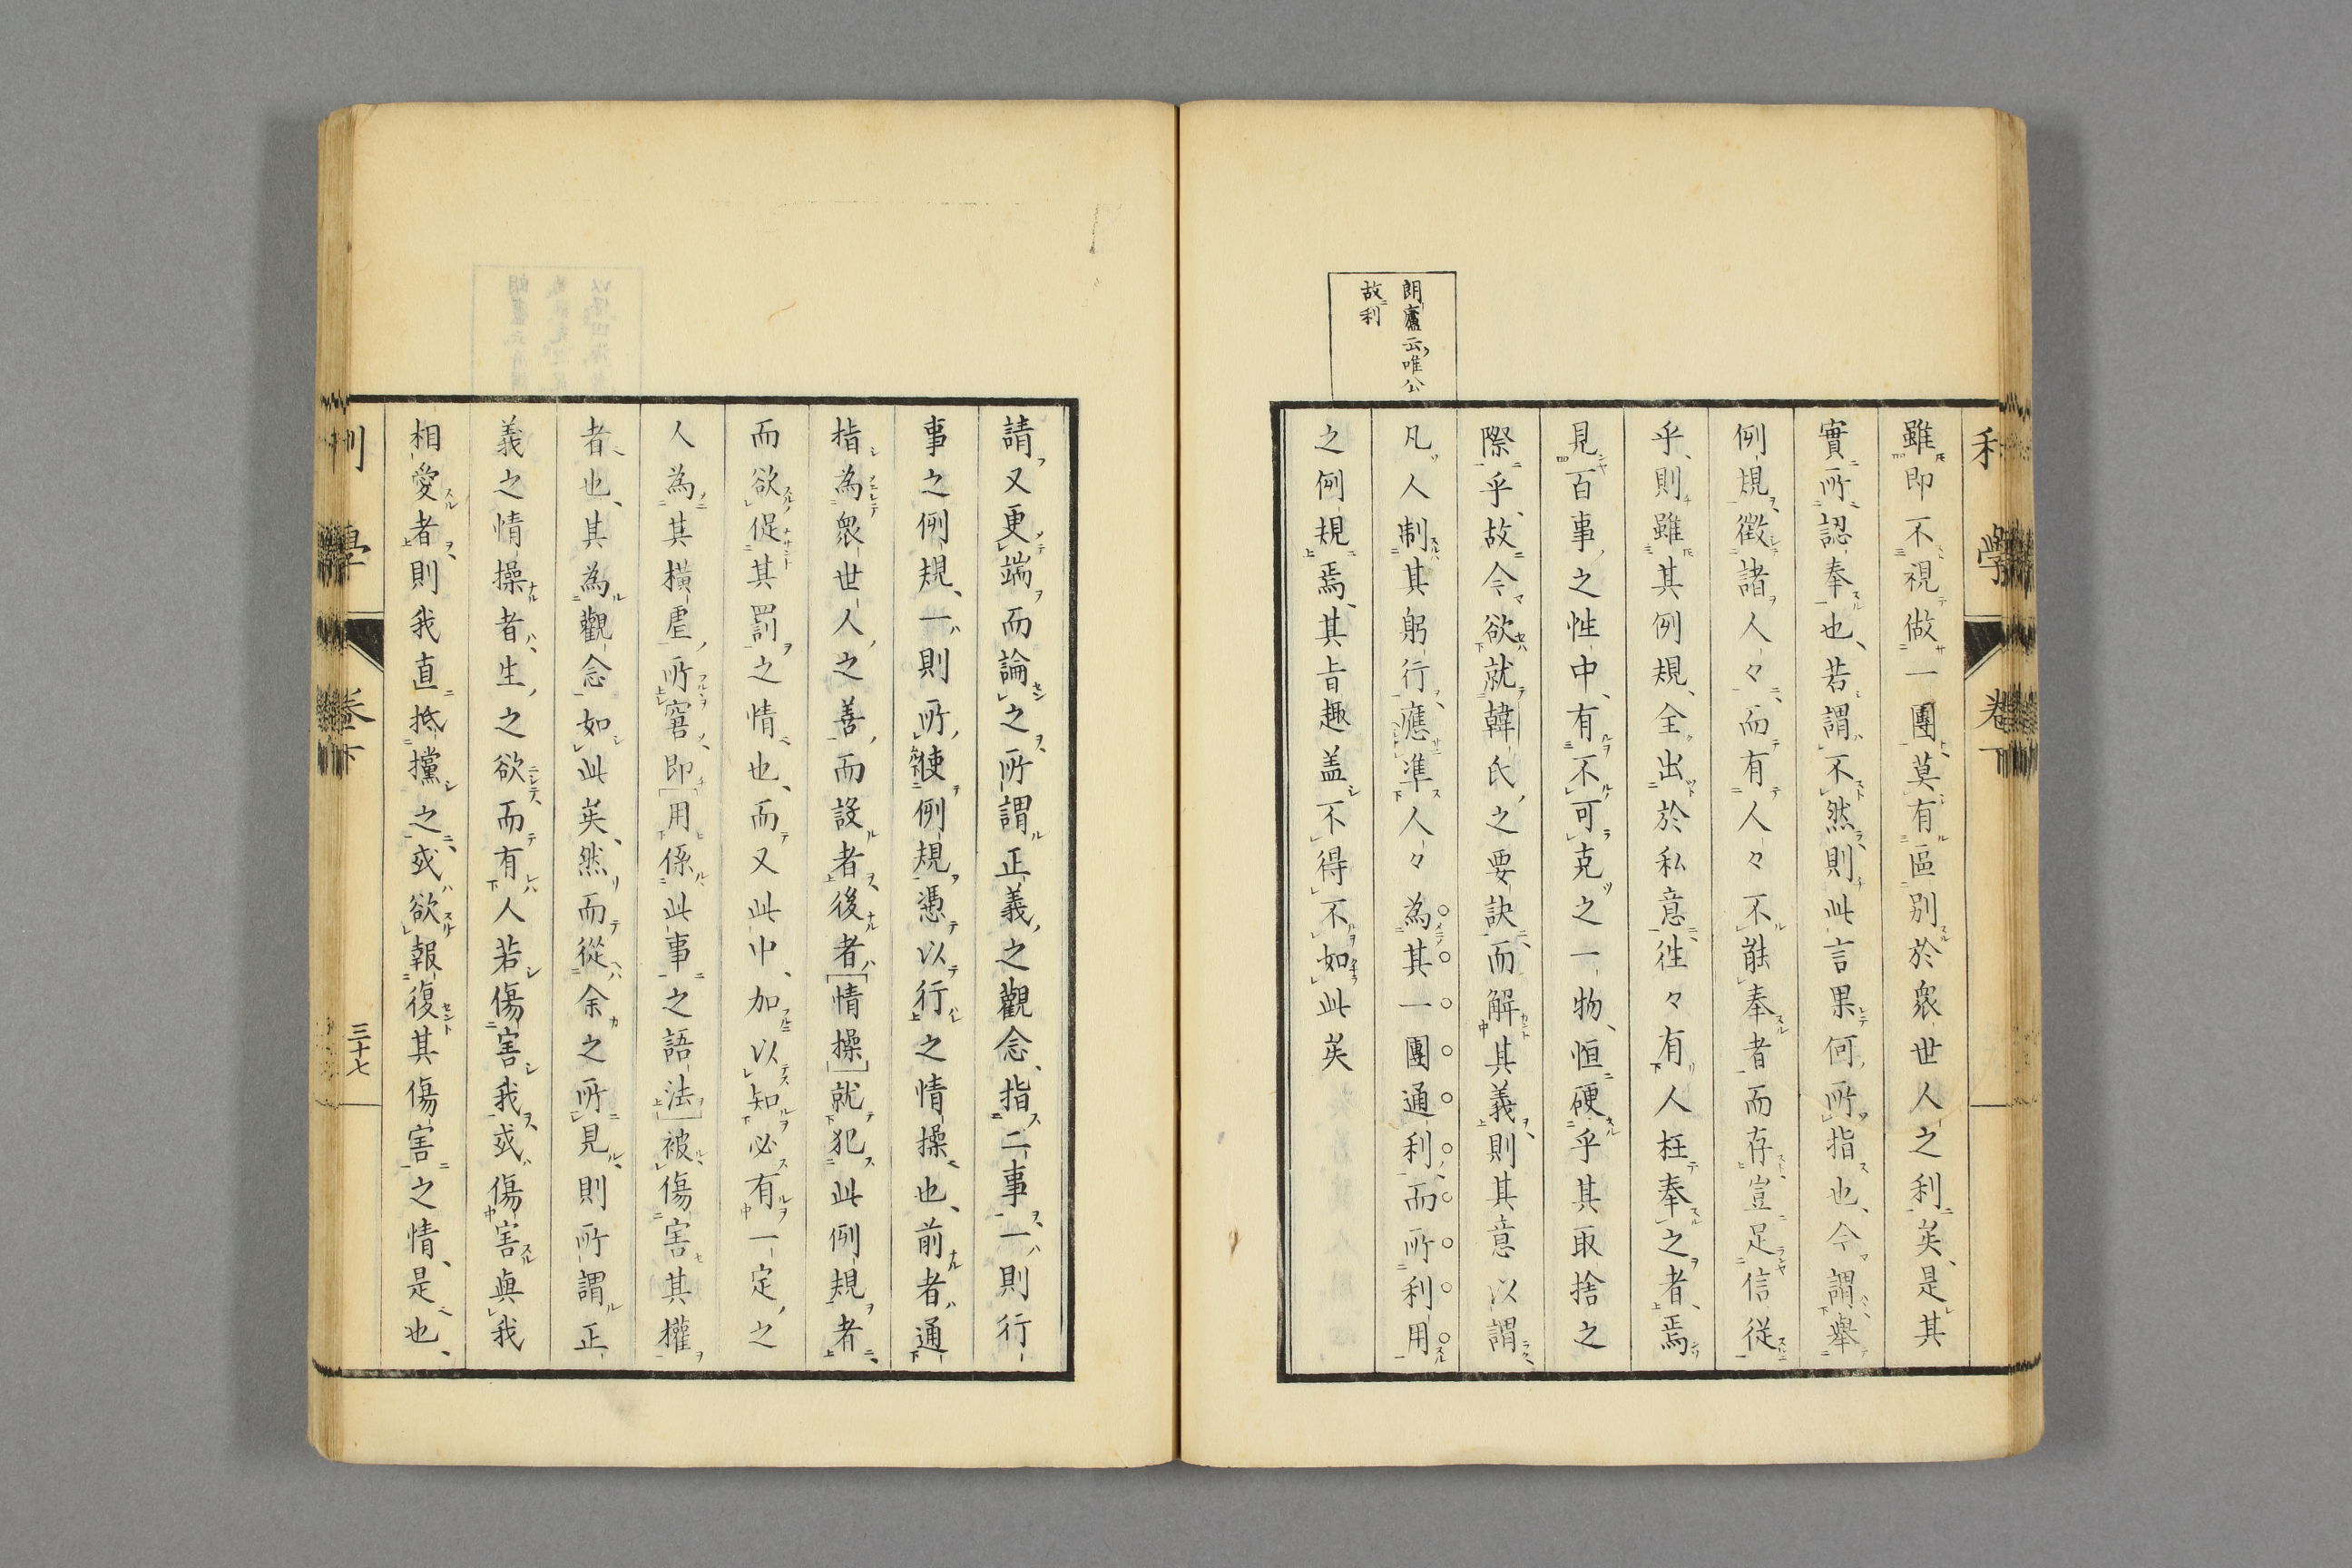 利學 卷下
朗廬云唯公
故利
雖即不視做一團莫有區別於衆世人之利矣、是其
實所認奉也、若謂不然則此言果何所指也、今謂舉
例規徵諸人々而有人々不能奉者而存豈足信從
乎、則雖其例規、全出於私意往々有人枉奉之者、焉
見百事之性中、有不可克之一物、恒硬乎其取捨之
際乎、故今欲就韓氏之要訣而解其義則其意以謂
凡人制其躬行、應準人々為其一團通利而所利用
之例規焉、其旨趣盖不得不如此矣
請又更端而論之所謂正義之觀念、指二事一則行
事之例規、一則所使例規憑以行之情操也、前者通
指為衆世人之善而設者後者情操就犯此例規者
而欲促其罰之情也、而又此中、加以知必有一定之
人為其橫虐所窘即用係此事之語法被傷害其權
者也、其為觀念如此矣、然而從余之所見則所謂正
義之情操者、生之欲而有人若傷害我或傷害與我
相愛者則我直抵攩之或欲報復其傷害之情、是也、
利學 卷下 三十七